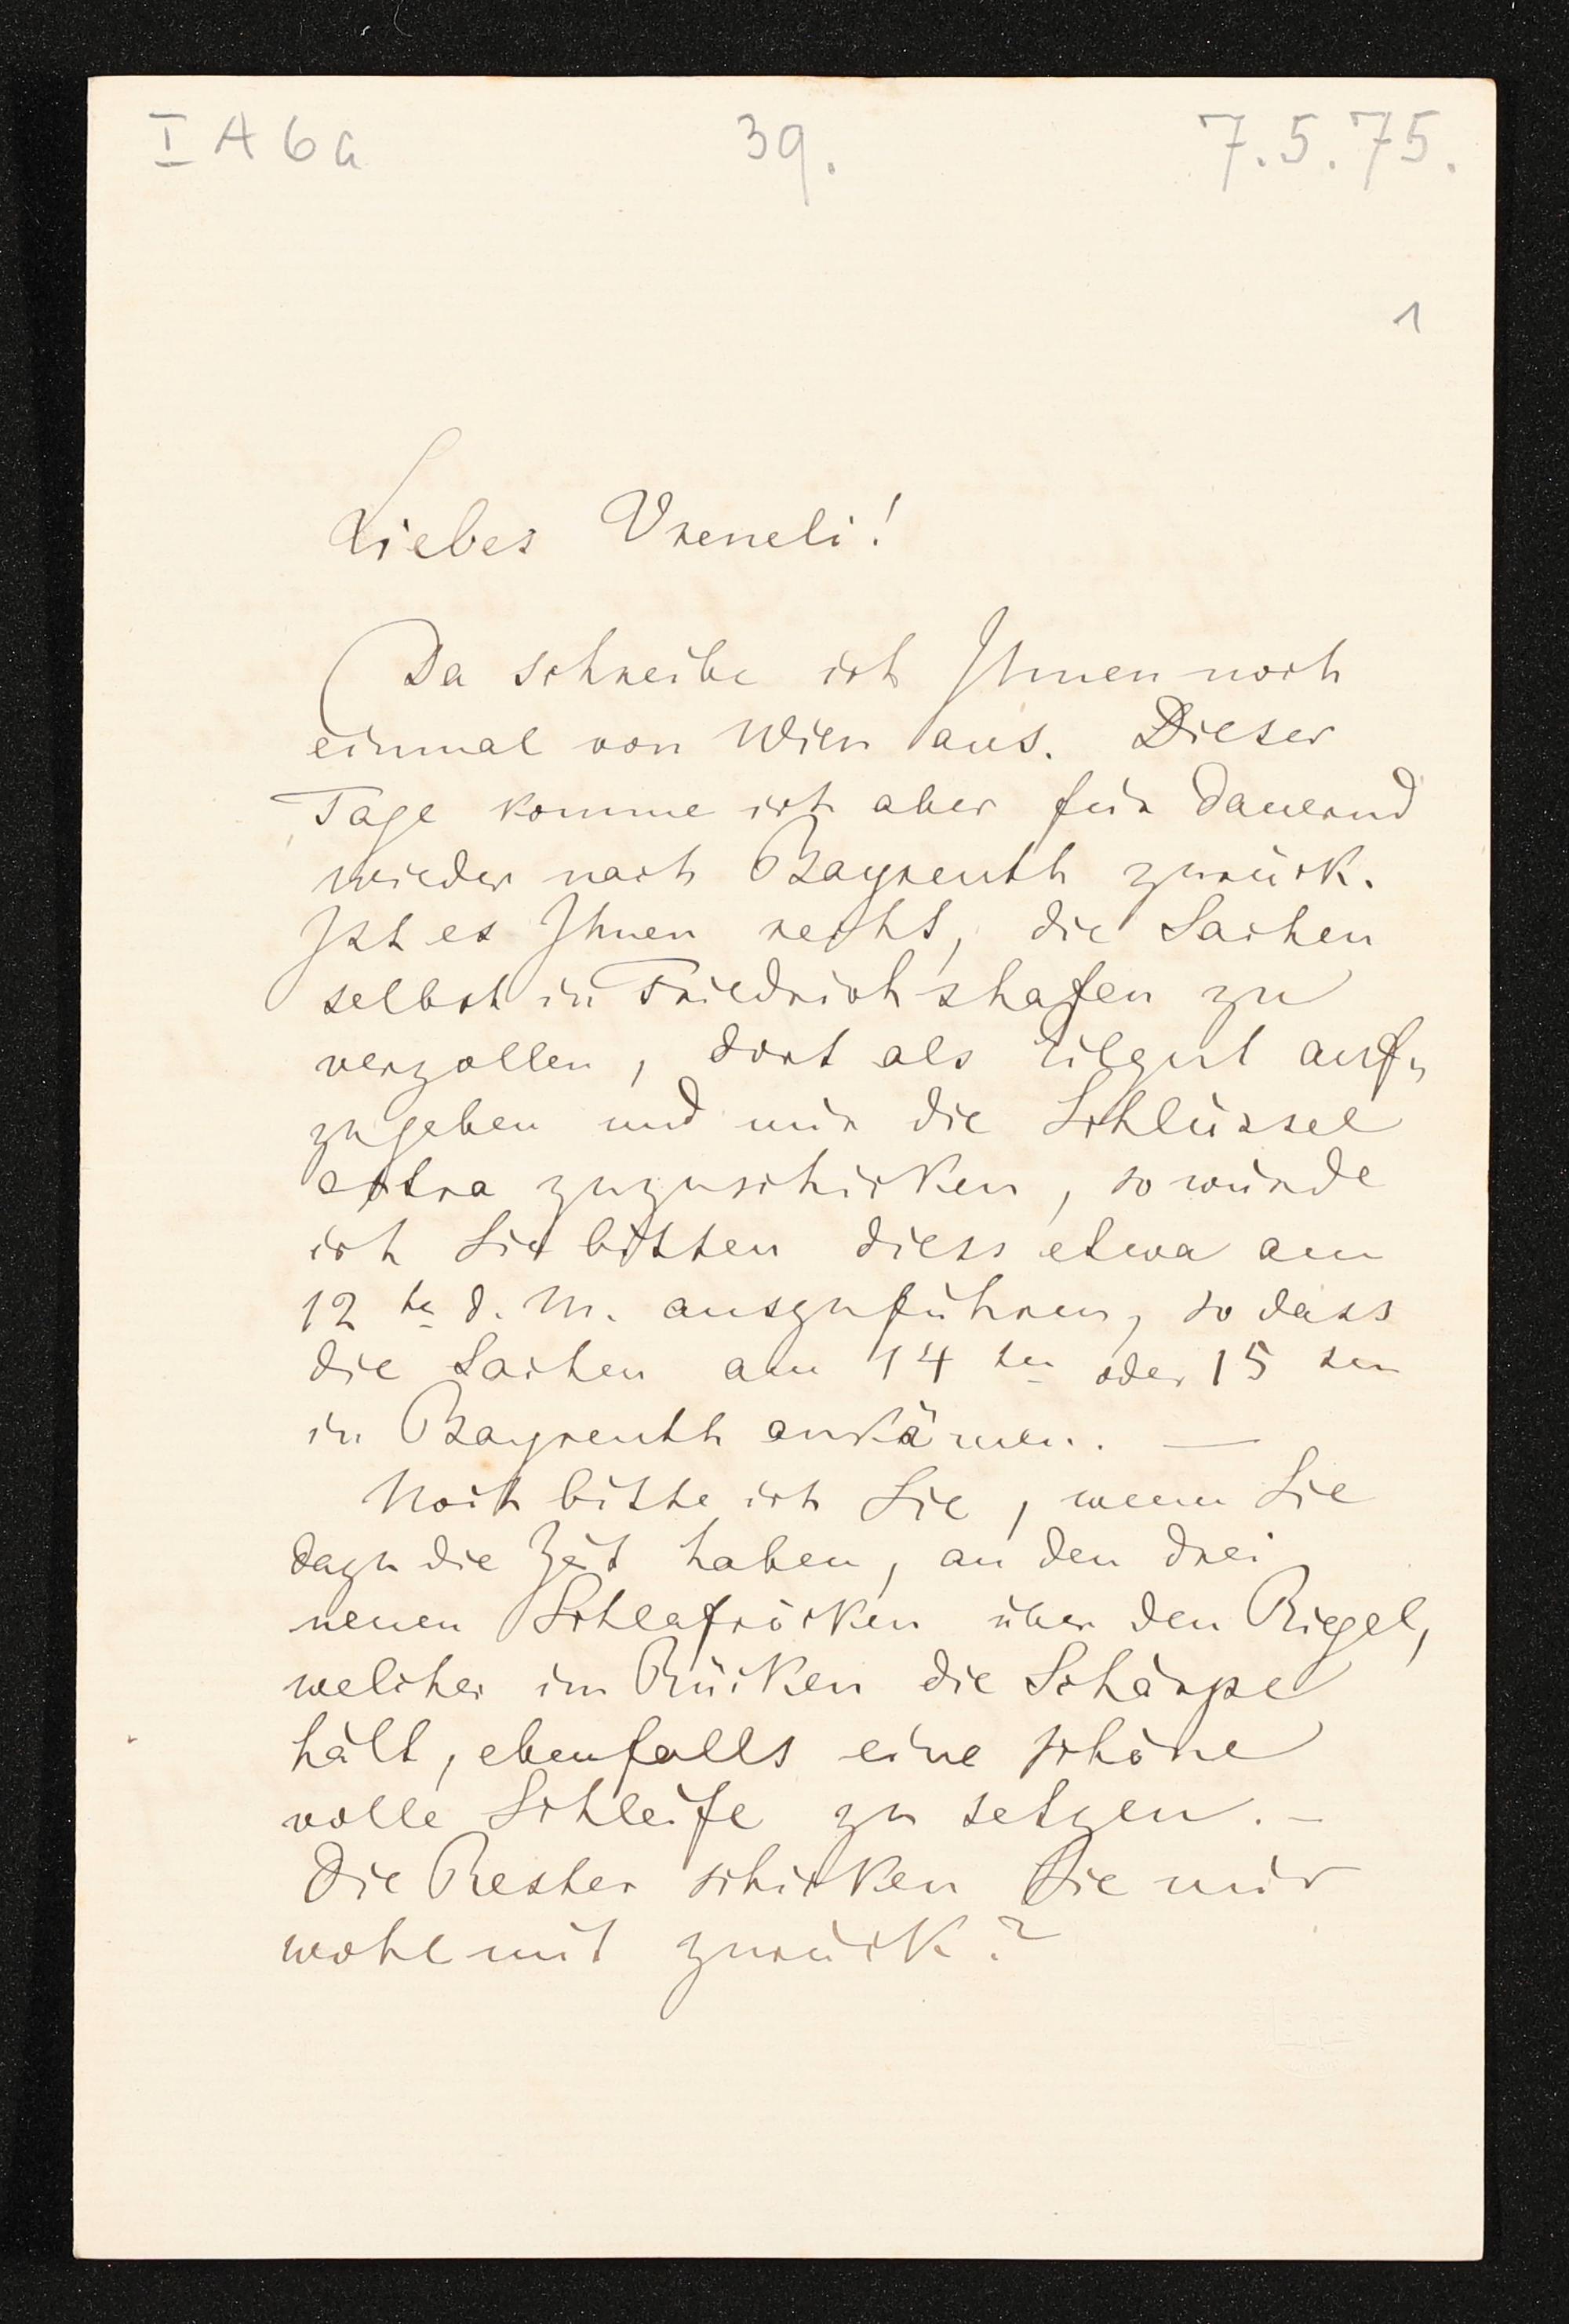 I A 6 a 39. 7.5.75.
1
Liebes Vreneli!
Da schreibe ich Ihnen noch
einmal von Wien aus. Dieser
Tage komme ich aber für dauernd
wieder nach Bayreuth zurück.
Ist es Ihnen recht, die Sachen
selbst in Friedrichshafen zu
verzollen, dort als Eilgut auf-
zugeben und mir die Schlüssel
extra zuzuschicken, so würde
ich Sie bitten diess etwa am
12 ten d. M. auszuführen, so dass
die Sachen am 14 ten oder 15 ten
in Bayreuth ankämen. —
Noch bitte ich Sie, wenn Sie
dazu die Zeit haben, an den drei
neuen Schlafröcken über den Riegel,
welcher im Rücken die Schärpe
hält, ebenfalls eine schöne
volle Schleife zu setzen. –
Die Rester schicken Sie mir
wohl mit zurück?